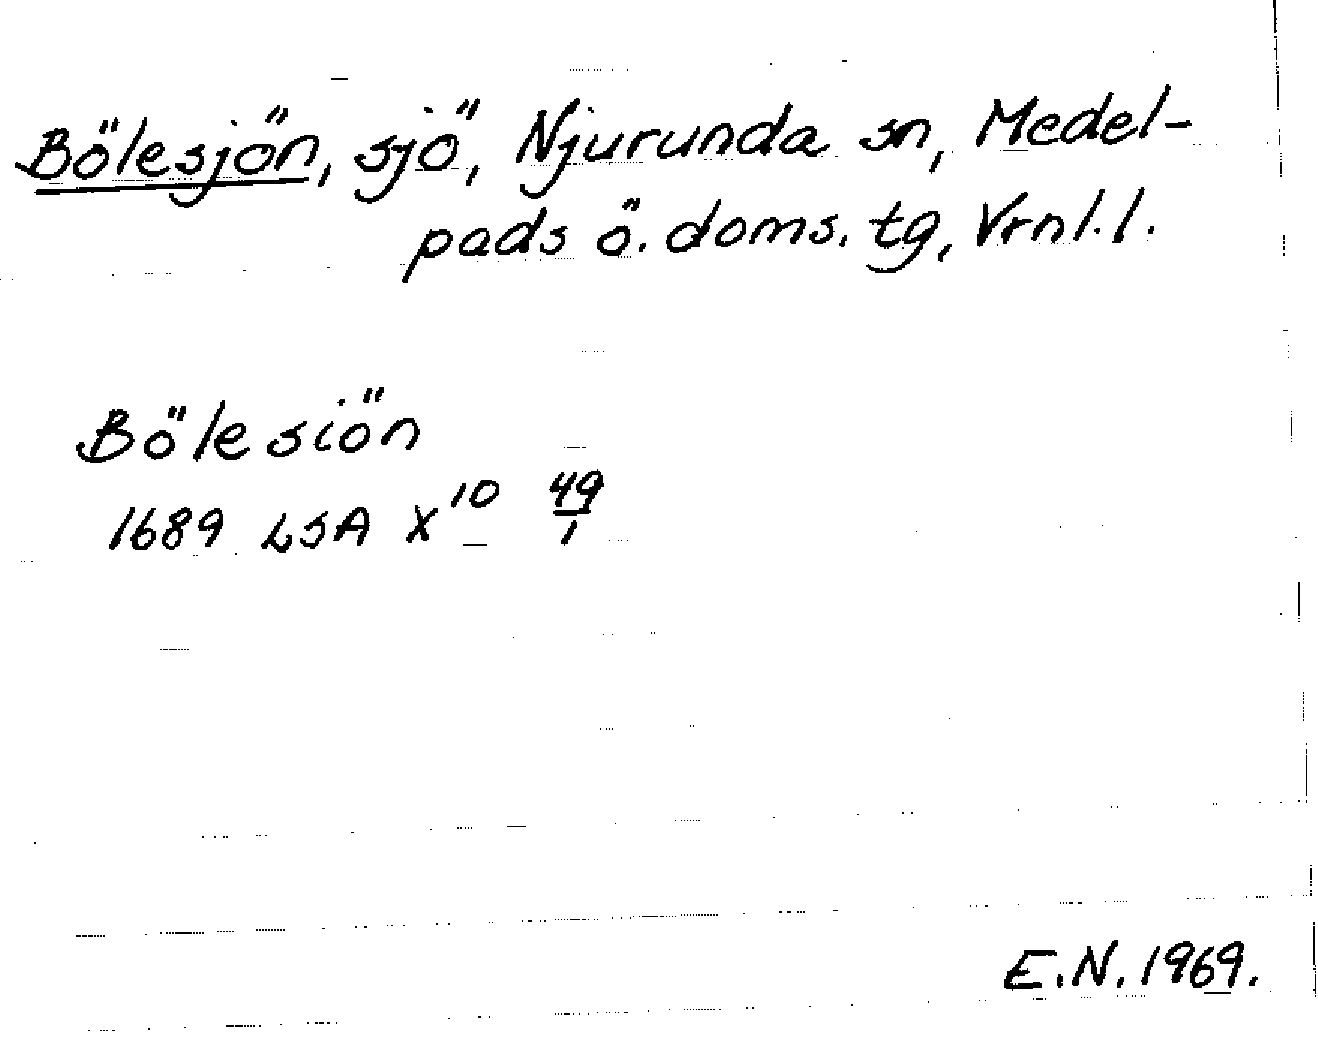 Bölesjön, sjö, Njurunda sn, Medel-
pads ö. doms. tg, Vrnl.l.
Bölesiön
1689 LSA X¹⁰ 49/1
E.N. 1969.